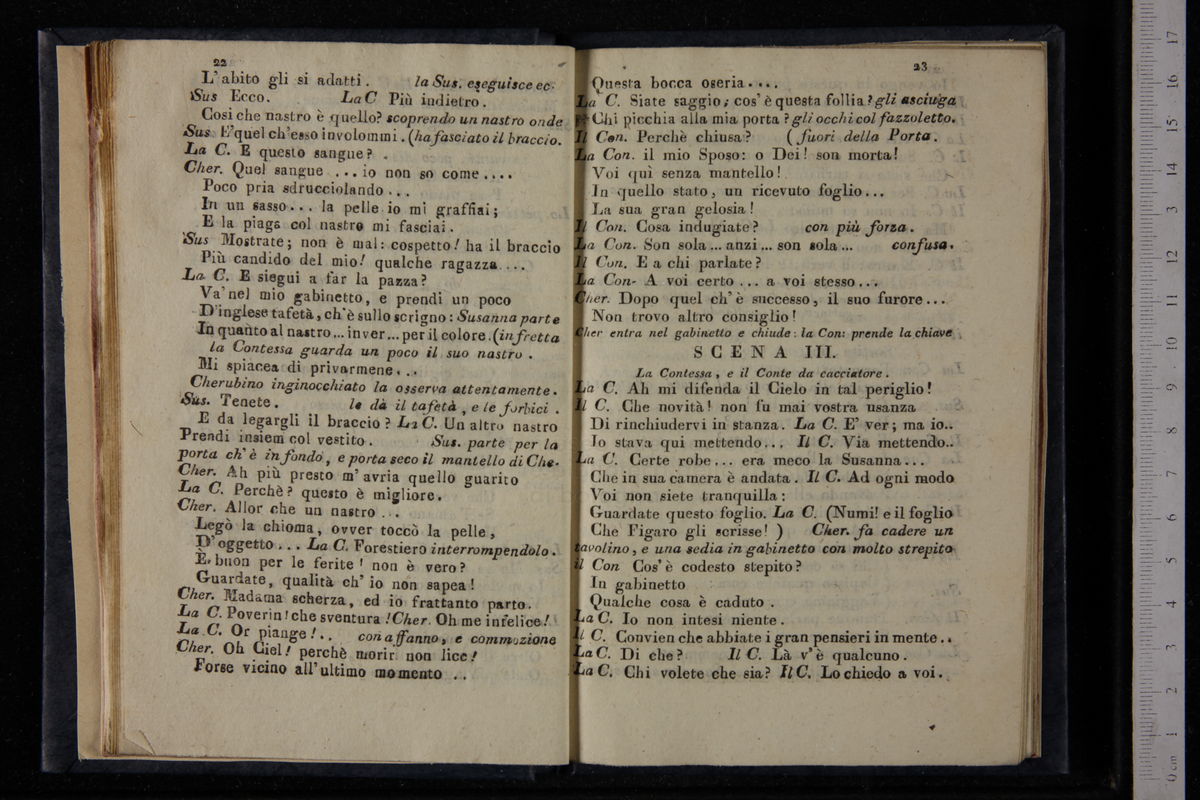 22
L'abito gli si adatti. la Sus. eseguisce ec.
Sus Ecco. La C Più indietro.
Cosi che nastro è quello? scoprendo un nastro onde
Sus E' quel ch'esso involommi. (ha fasciato il braccio.
La C. E questo sangue?
Cher. Quel sangue ... io non so come ....
Poco pria sdrucciolando ...
In un sasso... la pelle io mi graffiai;
E la piaga col nastro mi fasciai.
Sus Mostrate; non è mal: cospetto! ha il braccio
Più candido del mio! qualche ragazza....
La C. E siegui a far la pazza?
Va' nel mio gabinetto, e prendi un poco
D'inglese tafetà, ch'è sullo scrigno: Susanna parte
In quanto al nastro... inver... per il colore. (in fretta
la Contessa guarda un poco il suo nastro.
Mi spiacea di privarmene...
Cherubino inginocchiato la osserva attentamente.
Sus. Tenete. le dà il tafetà, e le forbici.
E da legargli il braccio? La C. Un altro nastro
Prendi insiem col vestito. Sus. parte per la
porta ch'è in fondo, e porta seco il mantello di Che-
Cher. Ah più presto m'avria quello guarito
La C. Perchè? questo è migliore.
Cher. Allor che un nastro ...
Legò la chioma, ovver toccò la pelle,
D'oggetto ... La C. Forestiero interrompendolo.
E' buon per le ferite! non è vero?
Guardate, qualità ch' io non sapea!
Cher. Madama scherza, ed io frattanto parto.
La C. Poverin! che sventura! Cher. Oh me infelice!
La C. Or piange!.. con affanno, e commozione
Cher. Oh Ciel! perchè morir non lice!
Forse vicino all'ultimo momento ..
23
Questa bocca oseria....
La C. Siate saggio; cos'è questa follia? gli asciuga
Chi picchia alla mia porta? gli occhi col fazzoletto.
Il Con. Perchè chiusa? (fuori della Porta.
La Con. il mio Sposo: o Dei! son morta!
Voi quì senza mantello!
In quello stato, un ricevuto foglio...
La sua gran gelosia!
Il Con. Cosa indugiate? con più forza.
La Con. Son sola... anzi... son sola... confusa.
Il Con. E a chi parlate?
La Con- A voi certo ... a voi stesso...
Cher. Dopo quel ch'è successo, il suo furore...
Non trovo altro consiglio!
Cher entra nel gabinetto e chiude: la Con: prende la chiave
SCENA III.
La Contessa, e il Conte da cacciatore.
La C. Ah mi difenda il Cielo in tal periglio!
Il C. Che novità! non fu mai vostra usanza
Di rinchiudervi in stanza. La C. E' ver; ma io..
Io stava qui mettendo... Il C. Via mettendo..
La C. Certe robe... era meco la Susanna...
Che in sua camera è andata. Il C. Ad ogni modo
Voi non siete tranquilla:
Guardate questo foglio. La C. (Numi! e il foglio
Che Figaro gli scrisse!) Cher. fa cadere un
tavolino, e una sedia in gabinetto con molto strepito
il Con Cos'è codesto stepito?
In gabinetto
Qualche cosa è caduto.
La C. Io non intesi niente.
Il C. Convien che abbiate i gran pensieri in mente..
La C. Di che? Il C. Là v'è qualcuno.
La C. Chi volete che sia? Il C. Lo chiedo a voi.
0 cm 1 2 3 4 5 6 7 8 9 10 11 12 13 14 15 16 17